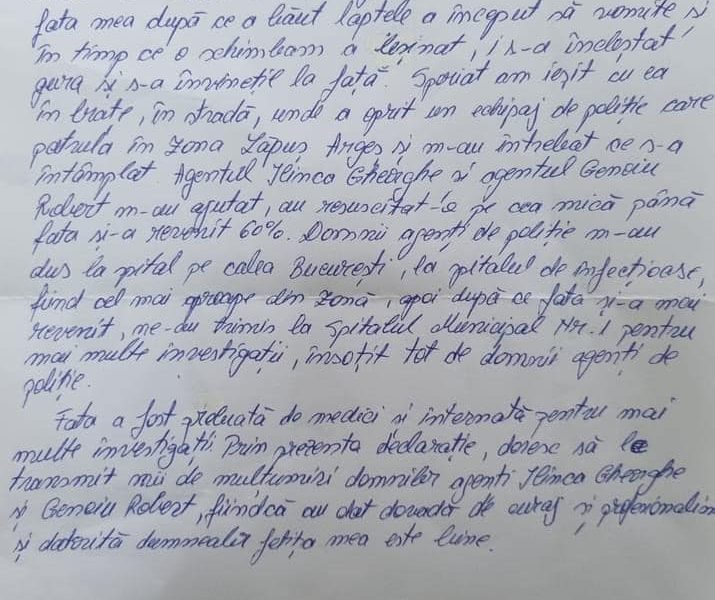 fata mea după ce a băut laptele a început să vomite și
în timp ce o schimbam a leșinat, i s-a încleștat
gura și s-a învinețit la față. Speriat am ieșit cu ea
în brațe, în stradă, unde a oprit un echipaj de poliție care
patrula în zona Lăpuș Argeș și m-au întrebat ce s-a
întâmplat. Agentul Ilinca Gheorghe și agentul Genoiu
Robert m-au ajutat, au resuscitat-o pe cea mică până
fata și-a revenit 60%. Domnii agenți de poliție m-au
dus la spital pe calea București, la spitalul de infecțioase,
fiind cel mai aproape din zonă, apoi după ce fata și-a mai
revenit, ne-au trimis la Spitalul Municipal Nr. 1 pentru
mai multe investigații, însoțit tot de domnii agenți de
poliție.
Fata a fost preluată de medici și internată pentru mai
multe investigații. Prin prezenta declarație, doresc să le
transmit mii de mulțumiri domnilor agenți Ilinca Gheorghe
și Genoiu Robert, fiindcă au dat dovadă de curaj și profesionalism
și datorită dumnealor fetița mea este bine.